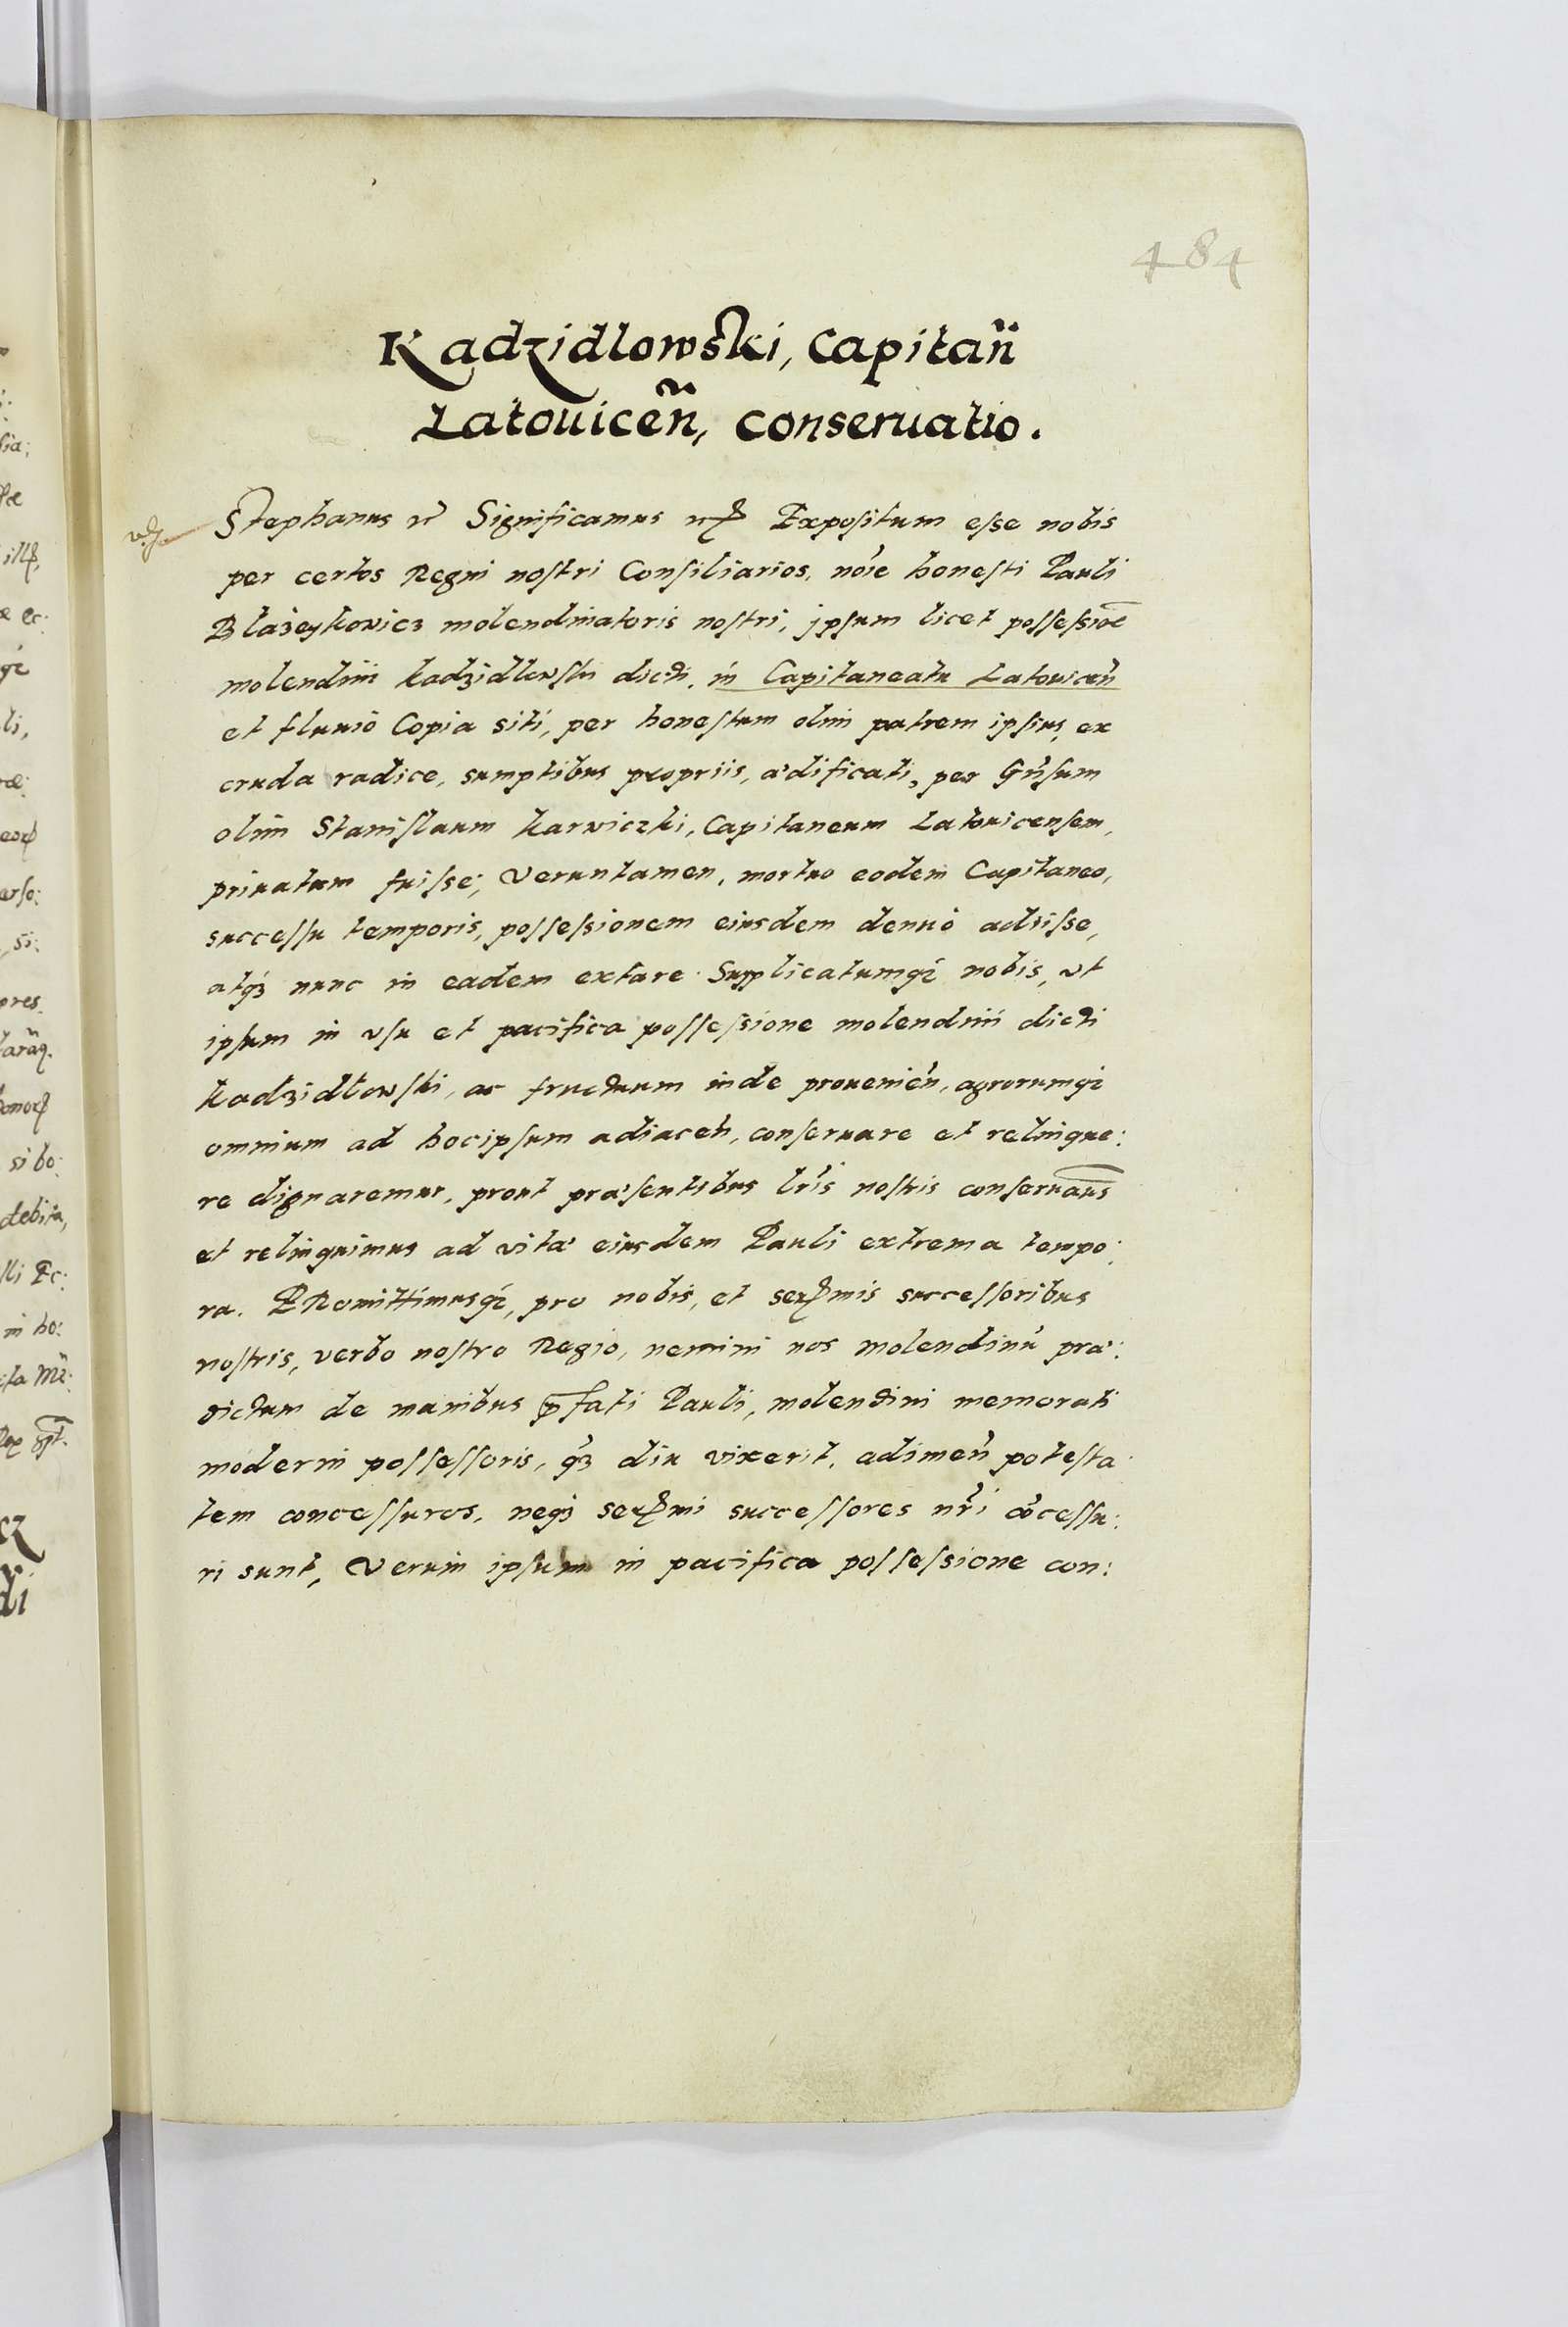 484
Kądzidlowski, Capitan̄
Latouicen̄, conseruatio.
Stephanus etc Significamus etc Expositum esse nobis
per certos Regni nostri Consiliarios, noīe honesti Pauli
Blażeykowicz molendinatoris nostri, jpsum licet possessioē
molendini kadzidlowski dicti, in Capitaneatu Latouicen̄
et fluuio Copia siti, per honestum olim patrem ipsius, ex
cruda radice, sumptibus propriis, ædificati, per Gn̄sum
olim Stanislaum karwiczki, Capitaneum Latouicensem,
priuatum fuisse; Veruntamen, mortuo eodem Capitaneo,
successu temporis, possessionem eiusdem denuò adiisse,
atq3 nunc in eadem extare. Supplicatumq3 nobis, vt
ipsum in vsu et pacifica possessione molendini dicti
kadzidłowski, ac fructuum inde prouenien̄, agrorumq3
omnium ad hocipsum adiacen̄, conseruare et relinque:
re dignaremur, prout præsentibus lr̄is nostris conseruam̄us
et relinquimus ad vitæ eiusdem Pauli extrema tempo:
ra. PRomittimusq3, pro nobis, et serꝫmis successoribus
nostris, verbo nostro Regio, nemini nos molendinū præ:
dictum de manibus p̄fati Pauli, molendini memorati
moderni possessoris, q̄3 diu vixerit, adimen̄ potesta
tem concessuros, neq3 serꝫmi successores nr̄i cōcessu:
ri sunt, Verum ipsum in pacifica possessione con: